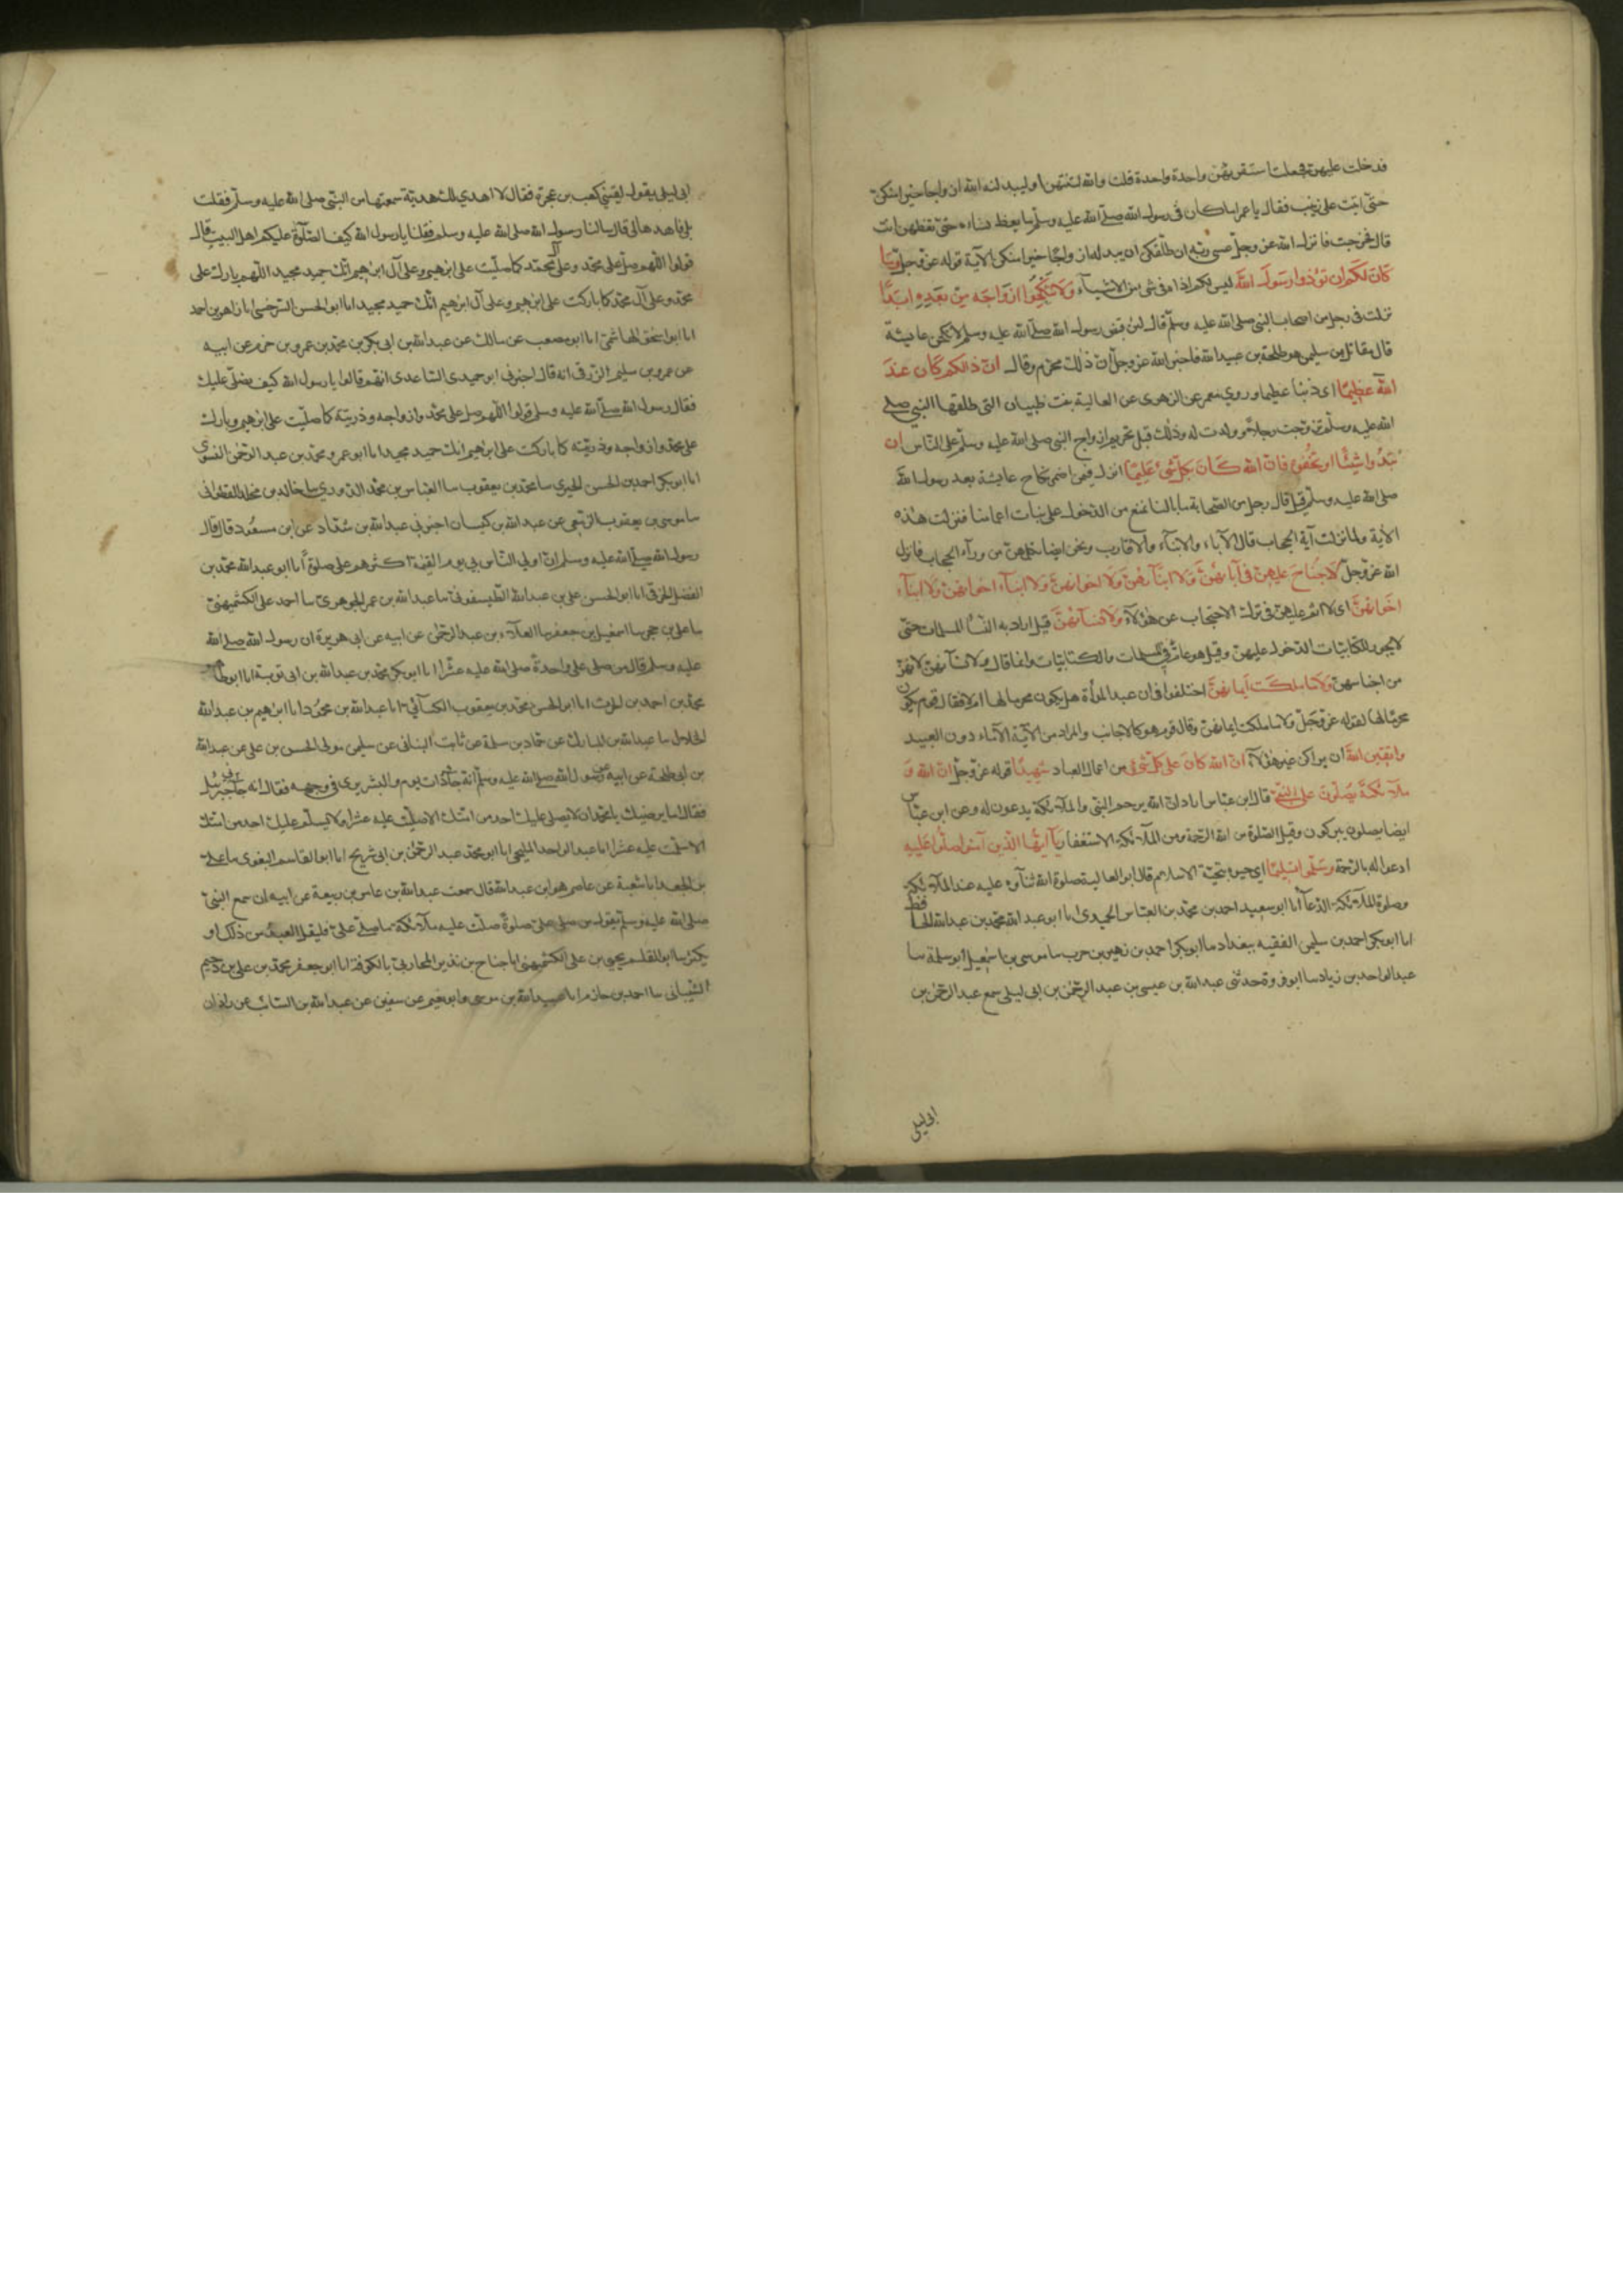 فدخلت عليهن فجعلت استقريهن واحدة واحدة قلت والله لتنتهن او ليبدلنه الله ازواجا خيرا منكن
حتى اتيت على زينب فقال يا عمر اما كان في رسول الله صلى الله عليه وسلم ما يعظ نساءه حتى تعظهن انت
قال فخرجت فانزل الله عز وجل عسى ربه ان طلقكن ان يبدله ازواجا خيرا منكن الآية قوله عز وجل وما
كان لكم ان تؤذوا رسول الله ليس لكم اذاه في شئ من الاشياء ولا تنكحوا ازواجه من بعده ابدا
نزلت في رجل من اصحاب النبي صلى الله عليه وسلم قال لئن قبض رسول الله صلى الله عليه وسلم لانكحن عايشة
قال مقاتل بن سليمن هو طلحة بن عبيد الله فاخبر الله عز وجل ان ذلك محرم وقال ان ذلكم كان عند
الله عظيما اى ذنبا عظيما وروي معمر عن الزهرى عن العالية بنت ظبيان التى طلقها النبي صلى
الله عليه وسلم تزوجت رجلا وولدت له وذلك قبل تحريم ازواج النبي صلى الله عليه وسلم على الناس ان
تبدوا شيئا او تخفوه فان الله كان بكل شئ عليما نزلت فيمن اضمر نكاح عايشة بعد رسول الله
صلى الله عليه وسلم قيل قال رجل من الصحابة ما بالنا نمنع من الدخول على بنات اعمامنا فنزلت هذه
الآية ولما نزلت آية الحجاب قال الآباء والابناء والاقارب ونحن ايضا نكلمهن من ورآء الحجاب فانزل
الله عز وجل لا جناح عليهن في آبائهن ولا ابنائهن ولا اخوانهن ولا ابناء اخوانهن ولا ابناء
اخواتهن اى لا اثم عليهن في ترك الاحتجاب عن هؤلاء ولا نسائهن قيل اراد به النسا المسلمات حتى
لا يجوز للكتابيات الدخول عليهن وقيل هو عام في المسلمات والكتابيات وانما قال ولا نسائهن لانهن
من اجناسهن ولا ما ملكت ايمانهن اختلفوا في ان عبد المرأة هل يكون محرما لها ام لا فقال قوم يكون
محرما لها لقوله عز وجل ولا ما ملكت ايمانهن وقال قوم هو كالاجانب والمراد من الآية الاماء دون العبيد
واتقين الله ان يراكن غير هؤلاء ان الله كان على كل شئ من اعمال العباد شهيدا قوله عز وجل ان الله و
ملائكته يصلون على النبي قال ابن عباس اراد ان الله يرحم النبي والملائكة يدعون له وعن ابن عباس
ايضا يصلون يبركون وقيل الصلوة من الله الرحمة ومن الملائكة الاستغفار يا ايها الذين آمنوا صلوا عليه
ادعوا له بالرحمة وسلموا تسليما اي حيوه بتحية الاسلام قال ابو العالية صلوة الله ثناؤه عليه عند الملائكة
وصلوة الملائكة الدعآ انا ابو سعيد احمد بن محمد بن العباس الحميدى انا ابو عبد الله محمد بن عبد الله الحافظ
انا ابو بكر احمد بن سليمن الفقيه ببغداد ما ابو بكر احمد بن زهير بن حرب سا موسى بن اسمعيل ابو سلمة سا
عبد الواحد بن زياد سا ابو فروة حدثنى عبد الله بن عيسى بن عبد الرحمن بن ابى ليلى سمع عبد الرحمن بن
ابى ليلى
ابى ليلى يقول لقيني كعب بن عجرة فقال الا اهدي لك هدية سمعتها من النبى صلى الله عليه وسلم فقلت
بلى فاهدها لي قال سالنا رسول الله صلى الله عليه وسلم فقلنا يا رسول الله كيف الصلوة عليكم اهل البيت قال
قولوا اللهم صل على محمد وعلى آل محمد كما صليت على ابرهيم وعلى آل ابرهيم انك حميد مجيد اللهم بارك على
محمد وعلى آل محمد كما باركت على ابرهيم وعلى آل ابرهيم انك حميد مجيد انا ابو الحسن السرخسى انا زاهر بن احمد
انا ابو اسحق الهاشمي انا ابو مصعب عن مالك عن عبد الله بن ابى بكر بن محمد بن عمرو بن حزم عن ابيه
عن عمرو بن سليم الزرقى انه قال اخبرنى ابو حميدى الساعدى انهم قالوا يا رسول الله كيف نصلى عليك
فقال رسول الله صلى الله عليه وسلم قولوا اللهم صل على محمد وازواجه وذريته كما صليت على ابرهيم وبارك
على محمد وازواجه وذريته كما باركت على ابرهيم انك حميد مجيد انا ابو عمرو محمد بن عبد الرحمن النسوي
انا ابو بكر احمد بن الحسن الحيري سا محمد بن يعقوب سا العباس بن محمد الدوري سا خالد بن مخلد القطوانى
سا موسى بن يعقوب الزمعي عن عبد الله بن كيسان اخبرنى عبد الله بن شداد عن ابن مسعود قال قال
رسول الله صلى الله عليه وسلم ان اولى الناس بي يوم القيمة اكثرهم على صلوة انا ابو عبد الله محمد بن
الفضل الخرقى انا ابو الحسن على بن عبد الله الطيسفونى سا عبد الله بن عمر الجوهري سا احمد على الكشميهني
سا على بن حجر سا اسمعيل بن جعفر سا العلاء بن عبد الرحمن عن ابيه عن ابى هريرة ان رسول الله صلى الله
عليه وسلم قال من صلى على واحدة صلى الله عليه عشرا انا ابو بكر محمد بن عبد الله بن ابى توبة انا ابو طاهر
محمد بن احمد بن الحرث انا ابو الحسن محمد بن يعقوب الكسائي انا عبد الله بن محمود انا ابرهيم بن عبد الله
الخلال سا عبد الله بن المبارك عن حماد بن سلمة عن ثابت البنانى عن سليمن مولى الحسن بن على عن عبد الله
بن ابى طلحة عن ابيه عن رسول الله صلى الله عليه وسلم انه جاء ذات يوم والبشر يرى فى وجهه فقال انه جاءنى جبرئيل
فقال اما يرضيك يا محمد ان لا يصلى عليك احد من امتك الا صليت عليه عشرا ولا يسلم عليك احد من امتك
الا سلمت عليه عشرا انا عبد الواحد المليحي انا ابو محمد عبد الرحمن بن ابى شريح انا ابو القاسم البغوى سا على
بن الجعد انا شعبة عن عاصم هو ابن عبد الله قال سمعت عبد الله بن عامر بن ربيعة عن ابيه ان سمع النبي
صلى الله عليه وسلم يقول من صلى على صلوة صلت عليه ملائكة ما صلى على فليقل العبد من ذلك او
يكثر سا ابو القسم يحيى بن على الكشميهنى انا جناح بن نذير المحاربي بالكوفة انا ابو جعفر محمد بن على بن دحيم
الشيبانى سا احمد بن حازم انا عبيد الله بن موسى وابو نعيم عن سفين عن عبد الله بن السائب عن زاذان